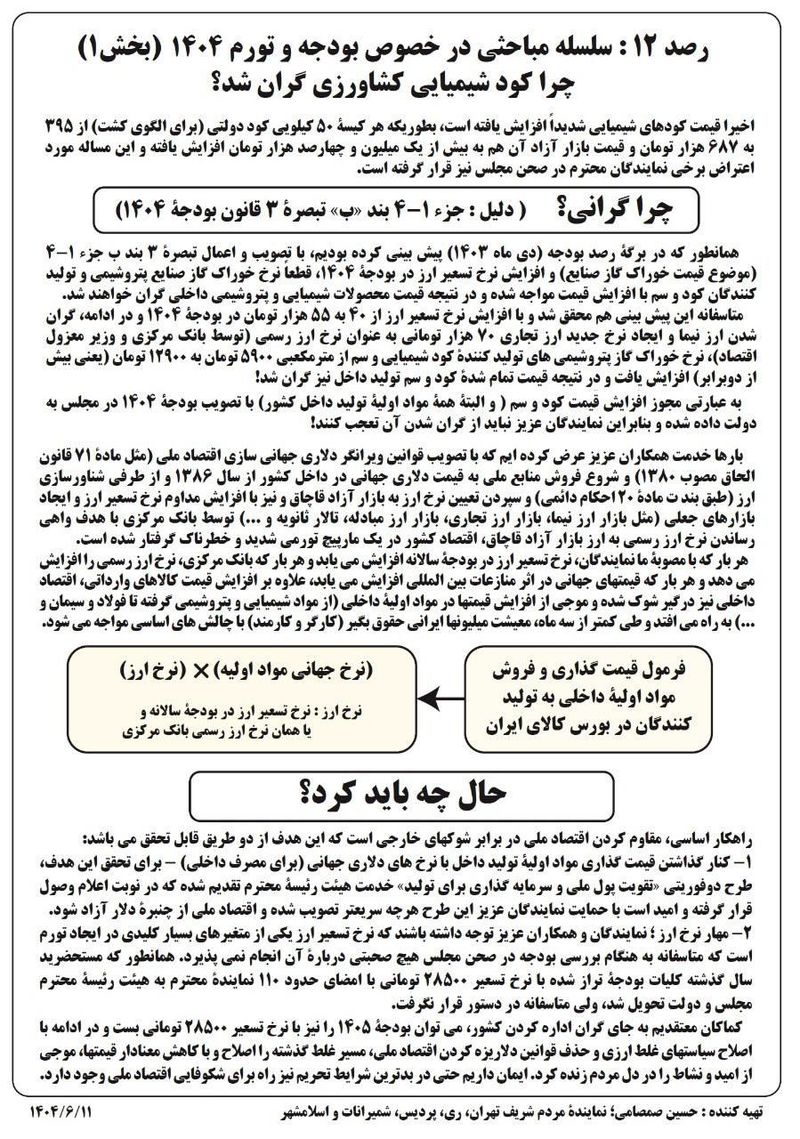 رصد ۱۲ : سلسله مباحثی در خصوص بودجه و تورم ۱۴۰۴ (بخش۱)
چرا کود شیمیایی کشاورزی گران شد؟
اخیرا قیمت کودهای شیمیایی شدیداً افزایش یافته است، بطوریکه هر کیسۀ ۵۰ کیلویی کود دولتی (برای الگوی کشت) از ۳۹۵
به ۶۸۷ هزار تومان و قیمت بازار آزاد آن هم به بیش از یک میلیون و چهارصد هزار تومان افزایش یافته و این مساله مورد
اعتراض برخی نمایندگان محترم در صحن مجلس نیز قرار گرفته است.
چرا گرانی؟ ( دلیل : جزء ۱-۴ بند «ب» تبصرۀ ۳ قانون بودجۀ ۱۴۰۴)
همانطور که در برگۀ رصد بودجه (دی ماه ۱۴۰۳) پیش بینی کرده بودیم، با تصویب و اعمال تبصرۀ ۳ بند ب جزء ۱-۴
(موضوع قیمت خوراک گاز صنایع) و افزایش نرخ تسعیر ارز در بودجۀ ۱۴۰۴، قطعاً نرخ خوراک گاز صنایع پتروشیمی و تولید
کنندگان کود و سم با افزایش قیمت مواجه شده و در نتیجه قیمت محصولات شیمیایی و پتروشیمی داخلی گران خواهند شد.
متاسفانه این پیش بینی هم محقق شد و با افزایش نرخ تسعیر ارز از ۴۰ به ۵۵ هزار تومان در بودجۀ ۱۴۰۴ و در ادامه، گران
شدن ارز نیما و ایجاد نرخ جدید ارز تجاری ۷۰ هزار تومانی به عنوان نرخ ارز رسمی (توسط بانک مرکزی و وزیر معزول
اقتصاد)، نرخ خوراک گاز پتروشیمی های تولید کنندۀ کود شیمیایی و سم از مترمکعبی ۵۹۰۰ تومان به ۱۲۹۰۰ تومان (یعنی بیش
از دوبرابر) افزایش یافت و در نتیجه قیمت تمام شدۀ کود و سم تولید داخل نیز گران شد!
به عبارتی مجوز افزایش قیمت کود و سم ( و البتۀ همۀ مواد اولیۀ تولید داخل کشور) با تصویب بودجۀ ۱۴۰۴ در مجلس به
دولت داده شده و بنابراین نمایندگان عزیز نباید از گران شدن آن تعجب کنند!
بارها خدمت همکاران عزیز عرض کرده ایم که با تصویب قوانین ویرانگر دلاری جهانی سازی اقتصاد ملی (مثل مادۀ ۷۱ قانون
الحاق مصوب ۱۳۸۰) و شروع فروش منابع ملی به قیمت دلاری جهانی در داخل کشور از سال ۱۳۸۶ و از طرفی شناورسازی
ارز (طبق بند ت مادۀ ۲۰ احکام دائمی) و سپردن تعیین نرخ ارز به بازار آزاد قاچاق و نیز با افزایش مداوم نرخ تسعیر ارز و ایجاد
بازارهای جعلی (مثل بازار ارز نیما، بازار ارز تجاری، بازار ارز مبادله، تالار ثانویه و ...) توسط بانک مرکزی با هدف واهی
رساندن نرخ ارز رسمی به ارز بازار آزاد قاچاق، اقتصاد کشور در یک مارپیچ تورمی شدید و خطرناک گرفتار شده است.
هر بار که با مصوبۀ ما نمایندگان، نرخ تسعیر ارز در بودجۀ سالانه افزایش می یابد و هر بار که بانک مرکزی، نرخ ارز رسمی را افزایش
می دهد و هر بار که قیمتهای جهانی در اثر منازعات بین المللی افزایش می یابد، علاوه بر افزایش قیمت کالاهای وارداتی، اقتصاد
داخلی نیز درگیر شوک شده و موجی از افزایش قیمتها در مواد اولیۀ داخلی (از مواد شیمیایی و پتروشیمی گرفته تا فولاد و سیمان و
...) به راه می افتد و طی کمتر از سه ماه، معیشت میلیونها ایرانی حقوق بگیر (کارگر و کارمند) با چالش های اساسی مواجه می شود.
فرمول قیمت گذاری و فروش
مواد اولیۀ داخلی به تولید
کنندگان در بورس کالای ایران
(نرخ جهانی مواد اولیه) × (نرخ ارز)
نرخ ارز : نرخ تسعیر ارز در بودجۀ سالانه و
یا همان نرخ ارز رسمی بانک مرکزی
حال چه باید کرد؟
راهکار اساسی، مقاوم کردن اقتصاد ملی در برابر شوکهای خارجی است که این هدف از دو طریق قابل تحقق می باشد:
۱- کنار گذاشتن قیمت گذاری مواد اولیۀ تولید داخل با نرخ های دلاری جهانی (برای مصرف داخلی) – برای تحقق این هدف،
طرح دوفوریتی «تقویت پول ملی و سرمایه گذاری برای تولید» خدمت هیئت رئیسۀ محترم تقدیم شده که در نوبت اعلام وصول
قرار گرفته و امید است با حمایت نمایندگان عزیز این طرح هرچه سریعتر تصویب شده و اقتصاد ملی از چنبرۀ دلار آزاد شود.
۲- مهار نرخ ارز ؛ نمایندگان و همکاران عزیز توجه داشته باشند که نرخ تسعیر ارز یکی از متغیرهای بسیار کلیدی در ایجاد تورم
است که متاسفانه به هنگام بررسی بودجه در صحن مجلس هیچ صحبتی دربارۀ آن انجام نمی پذیرد. همانطور که مستحضرید
سال گذشته کلیات بودجۀ تراز شده با نرخ تسعیر ۲۸۵۰۰ تومانی با امضای حدود ۱۱۰ نمایندۀ محترم به هیئت رئیسۀ محترم
مجلس و دولت تحویل شد، ولی متاسفانه در دستور قرار نگرفت.
کماکان معتقدیم به جای گران اداره کردن کشور، می توان بودجۀ ۱۴۰۵ را نیز با نرخ تسعیر ۲۸۵۰۰ تومانی بست و در ادامه با
اصلاح سیاستهای غلط ارزی و حذف قوانین دلاریزه کردن اقتصاد ملی، مسیر غلط گذشته را اصلاح و با کاهش معنادار قیمتها، موجی
از امید و نشاط را در دل مردم زنده کرد. ایمان داریم حتی در بدترین شرایط تحریم نیز راه برای شکوفایی اقتصاد ملی وجود دارد.
تهیه کننده : حسین صمصامی؛ نمایندۀ مردم شریف تهران، ری، پردیس، شمیرانات و اسلامشهر ۱۴۰۴/۶/۱۱